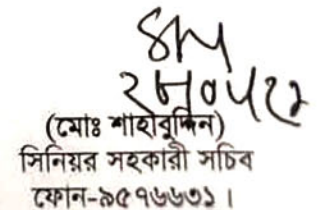 (মোঃ শাহাবুদ্দিন)
সিনিয়র সহকারী সচিব
ফোন-৯৫৭৬৬৩১।